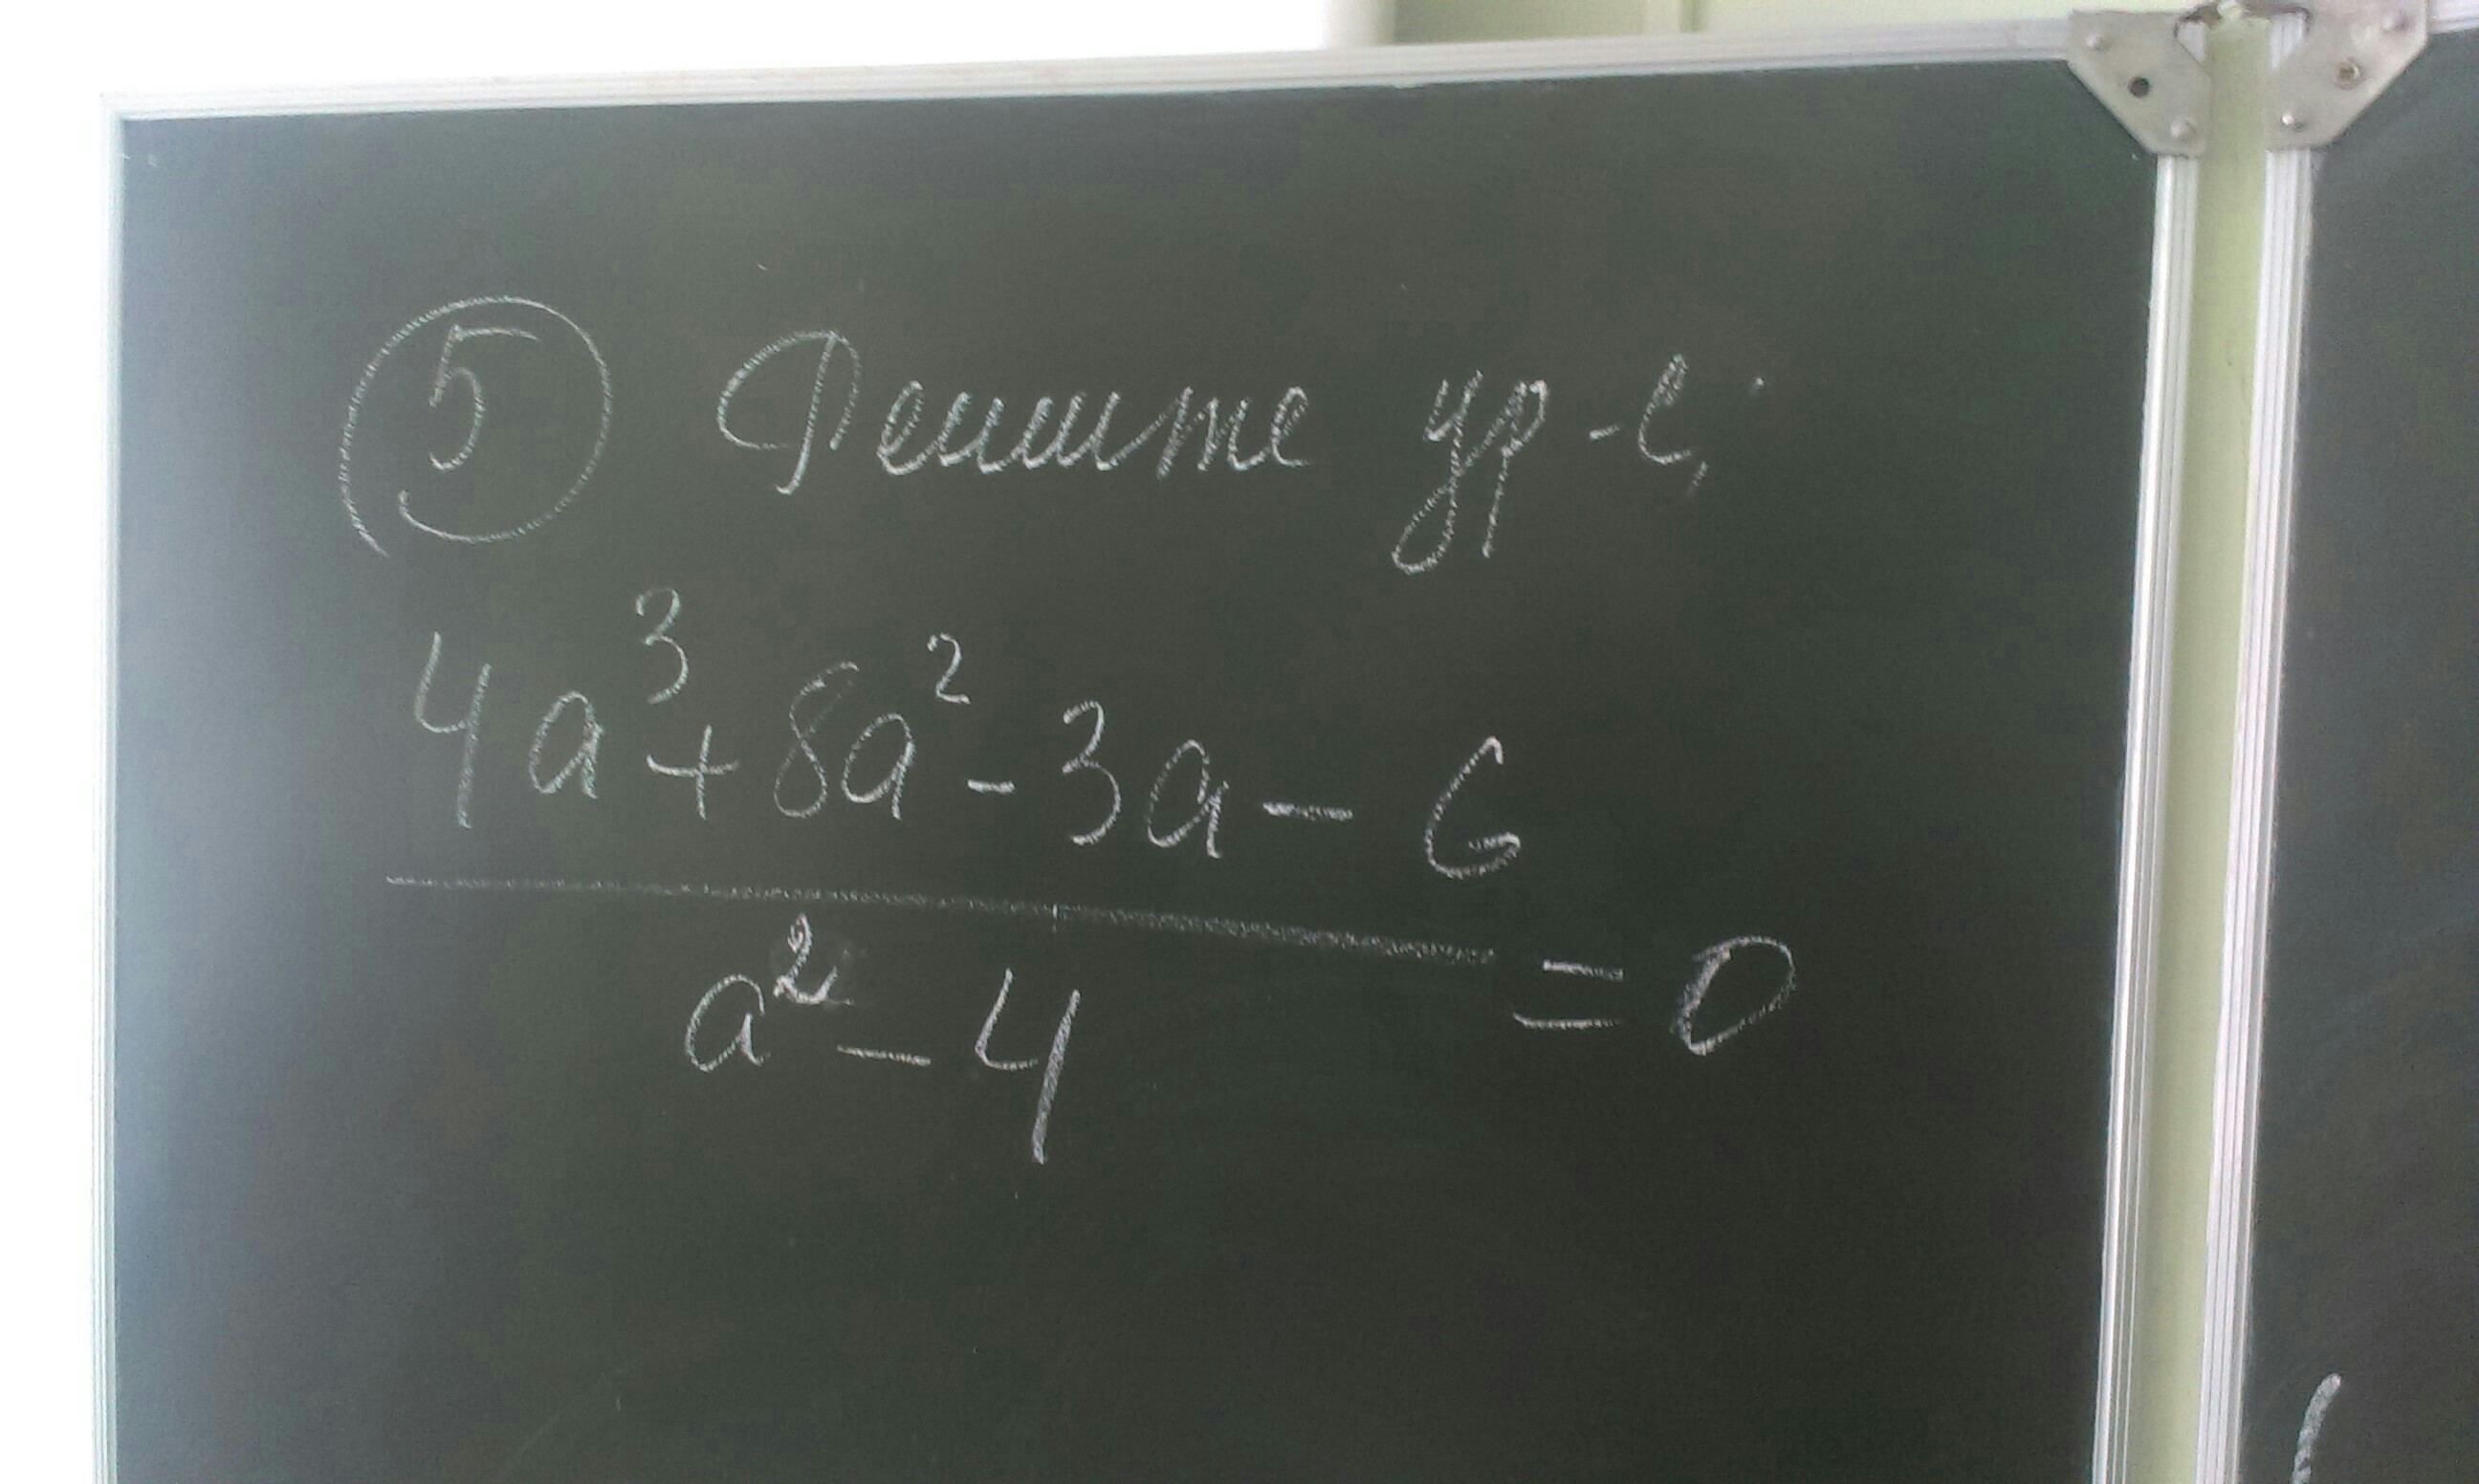 5 Решите ур-е,
4a³+8a²-3a-6
a²-4 = 0